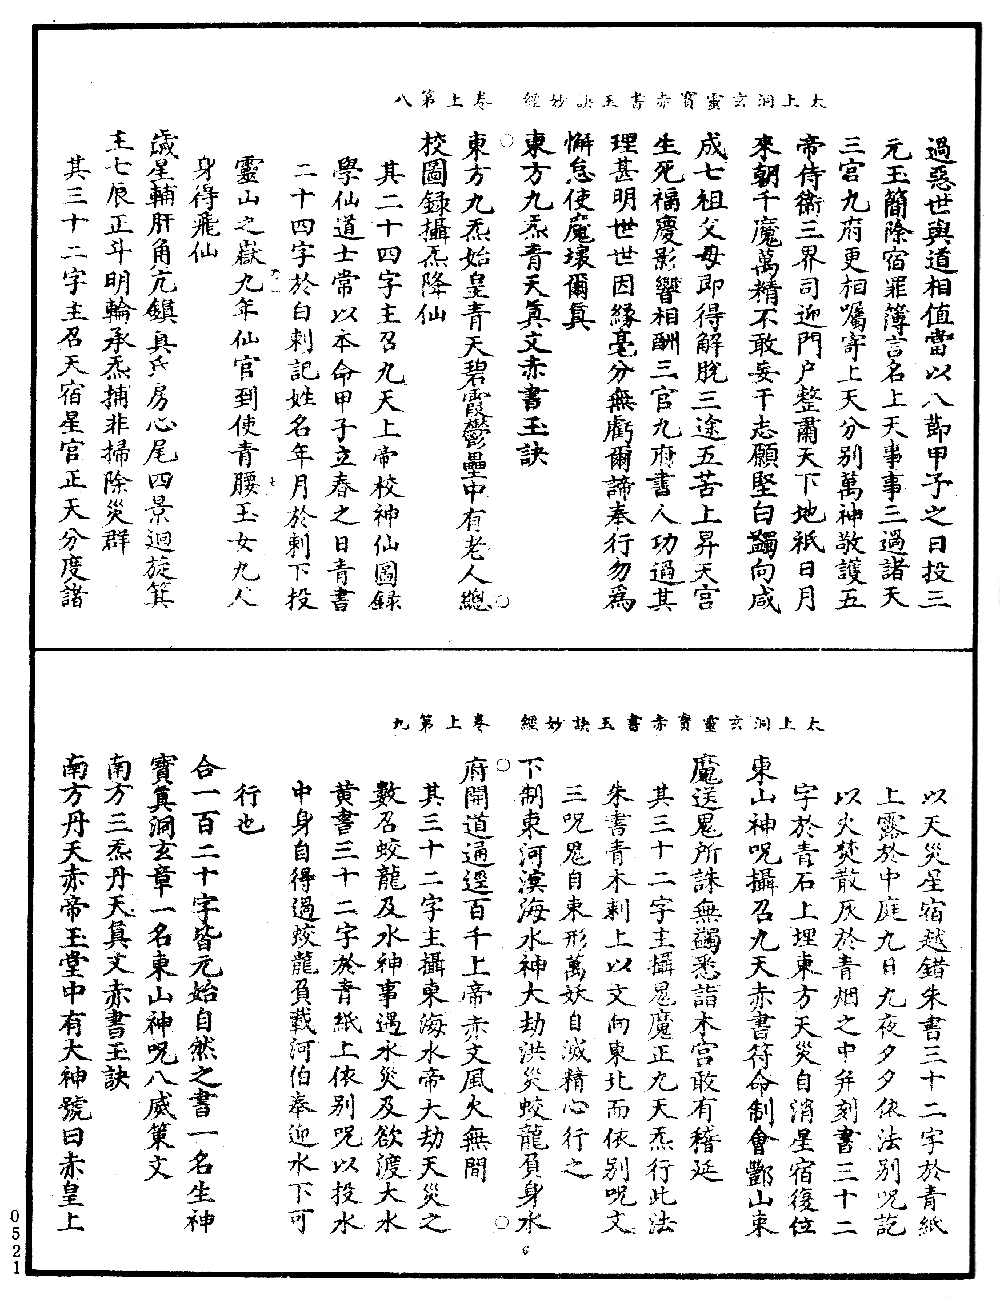 太上洞玄靈寶赤書玉訣妙經 卷上第八
過惡世與道相值當以八節甲子之日投三
元玉簡除宿罪簿言名上天事事三過諸天
三宫九府更相囑寄上天分别萬神敬護五
帝侍衛三界司迎門户整肅天下地祇日月
來朝千魔萬精不敢妄干志願堅白蠲向咸
成七祖父母即得解脫三途五苦上昇天宫
生死福慶影響相酬三官九府書人功過其
理甚明世世因緣毫分無虧爾諦奉行勿爲
懈怠使魔壞爾真
東方九炁青天真文赤書玉訣
東方九炁始皇青天碧霞鬱壘中有老人總
校圖録攝炁降仙
其二十四字主召九天上帝校神仙圖録
學仙道士常以本命甲子立春之日青書
二十四字於白刺記姓名年月於刺下投
靈山之嶽九年仙官到使青腰玉女九人
身得飛仙
歲星輔肝角亢鎮真氐房心尾四景迴旋箕
主七辰正斗明輪承炁捕非掃除災群
其三十二字主召天宿星官正天分度諸
太上洞玄靈寶赤書玉訣妙經 卷上第九
以天災星宿越錯朱書三十二字於青紙
上露於中庭九日九夜夕夕依法别呪訖
以火焚散灰於青烟之中并刻書三十二
字於青石上埋東方天災自消星宿復位
東山神呪攝召九天赤書符命制會酆山東
魔送鬼所誅無蠲悉詣木宫敢有稽延
其三十二字主攝鬼魔正九天炁行此法
朱書青木刺上以文向東北而依别呪文
三呪鬼自東形萬妖自滅精心行之
下制東河溟海水神大劫洪災蛟龍負身水
府開道通逕百千上帝赤文風火無間
其三十二字主攝東海水帝大劫天災之
數召蛟龍及水神事遇水災及欲渡大水
黄書三十二字於青紙上依别呪以投水
中身自得過蛟龍負載河伯奉迎水下可
行也
合一百二十字皆元始自然之書一名生神
寶真洞玄章一名東山神呪八威策文
南方三炁丹天真文赤書玉訣
南方丹天赤帝玉堂中有大神號曰赤皇上
6
0521